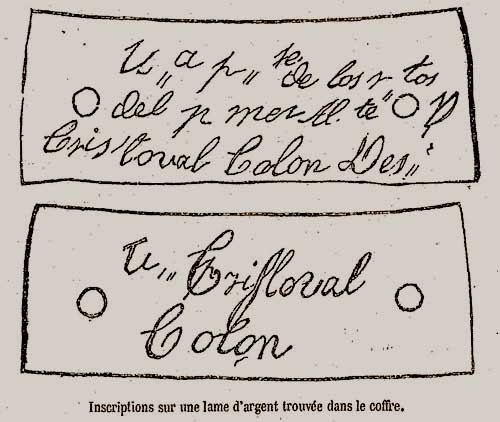 U„ a p„ te. de los r tos
del p mer Al. te D
Cristoval Colon Des„
U„ Cristoval
Colon
Inscriptions sur une lame d'argent trouvée dans le coffre.